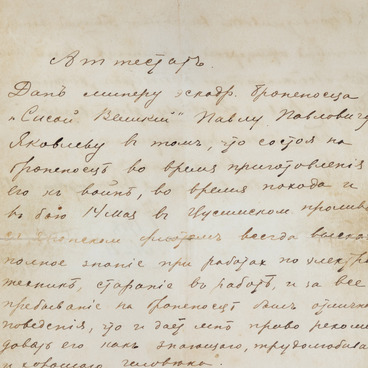 Аттестатъ.
Данъ минеру эскадр. броненосца
"Сисой Великій" Павлу Павловичу
Яковлеву въ томъ, что состоя на
броненосцѣ во время приготовленія
его къ войнѣ, во время похода и
въ бою 14 Мая въ Цусимском проливѣ
съ японскимъ флотомъ всегда выска
полное знаніе при работахъ по электро
техникѣ, стараніе въ работѣ, и за все
пребываніе на броненосцѣ былъ отличн
поведенія, что и даетъ мнѣ право рекоме
довать его какъ знающаго, трудолюбива
человѣка".